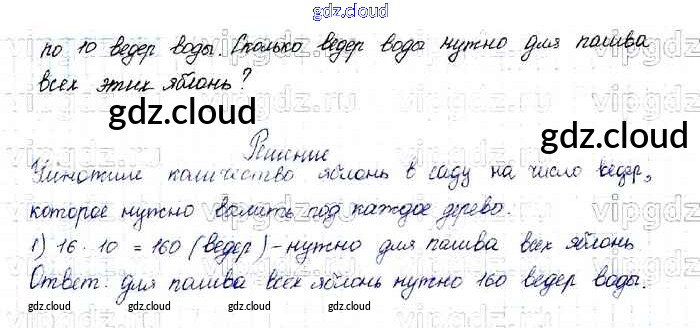 gdz.cloud
по 10 ведер воды. Сколько ведер воды нужно для полива
всех этих яблонь?
gdz.cloud
gdz.cloud
Решение
Умножим количество яблонь в саду на число ведер,
которое нужно вылить под каждое дерево.
1) 16 · 10 = 160 (ведер) - нужно для полива всех яблонь
Ответ: для полива всех яблонь нужно 160 ведер воды.
gdz.cloud gdz.cloud gdz.cloud gdz.cloud gdz.cloud